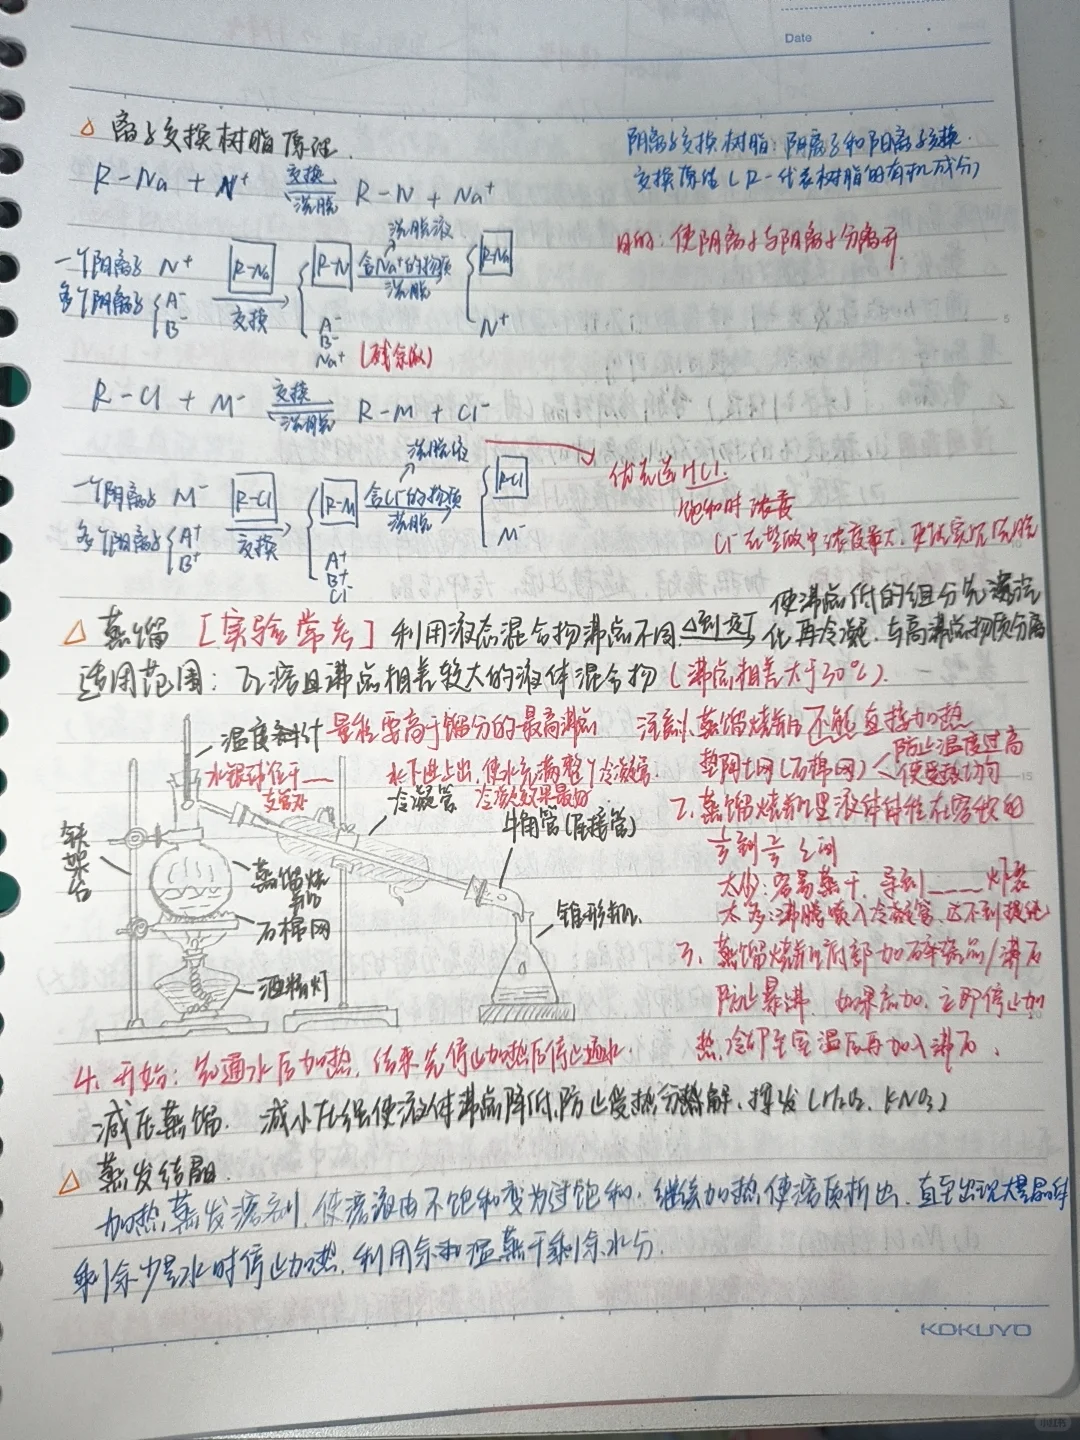 Date
△ 离子交换树脂原理.
R-Na + N⁺ 交换 洗脱 R-N + Na⁺
阴离子交换树脂: 阴离子和阳离子交换.
交换原理 (R-代表树脂的有机成分)
目的: 使阴离子与阳离子分离开.
洗脱液
一个阳离子 N⁺ R-Na 交换 R-N 含Na⁺的物质 洗脱 R-Na
多个阴离子 A⁻ B⁻
A⁻ B⁻ Na⁺ (残余液) N⁺
R-Cl + M⁻ 交换 洗脱 R-M + Cl⁻
洗脱液 优先选HCl.
一个阴离子 M⁻ R-Cl 交换 R-M 含Cl⁻的物质 洗脱 R-Cl
饱和时浓度
多个阳离子 A⁺ B⁺ M⁻
Cl⁻在盐酸中浓度最大, 更
A⁺ B⁺ Cl⁻
△ 蒸馏 [实验常考] 利用液态混合物沸点不同 使沸点低的组分先
化再冷凝. 与高沸点物质分离
适用范围: 互溶且沸点相差较大的液体混合物 (沸点相差大于30℃).
温度计 量程要高于馏分的最高沸点
水银球位于__
支管处
水下进上出, 使水充满整个冷凝管.
冷凝管 冷凝效果最好
牛角管(尾接管)
铁架台
蒸馏烧瓶
石棉网
酒精灯
锥形瓶
蒸馏烧瓶不能直接加热
垫陶土网(石棉网) 防止温度过高
使受热均匀
2. 蒸馏烧瓶里液体体积在容积的
到 之间
太少: 容易蒸干, 导致____炸裂
太多: 沸腾喷入冷凝管, 达不到提纯
3. 蒸馏烧瓶底部加碎瓷片/沸石
防止暴沸. 如果忘加, 立即停止加
热, 冷却至室温后再加入沸石.
4. 开始: 先通水后加热, 结束先停止加热后停止通水.
减压蒸馏. 减小压强使液体沸点降低, 防止受热分解、挥发 (H₂O₂、KNO₃)
△ 蒸发结晶.
加热蒸发溶剂, 使溶液由不饱和变为过饱和. 继续加热使溶质析出, 直至出现大量晶体
剩余少量水时停止加热, 利用余温蒸干剩余水分.
KOKUYO
小红书